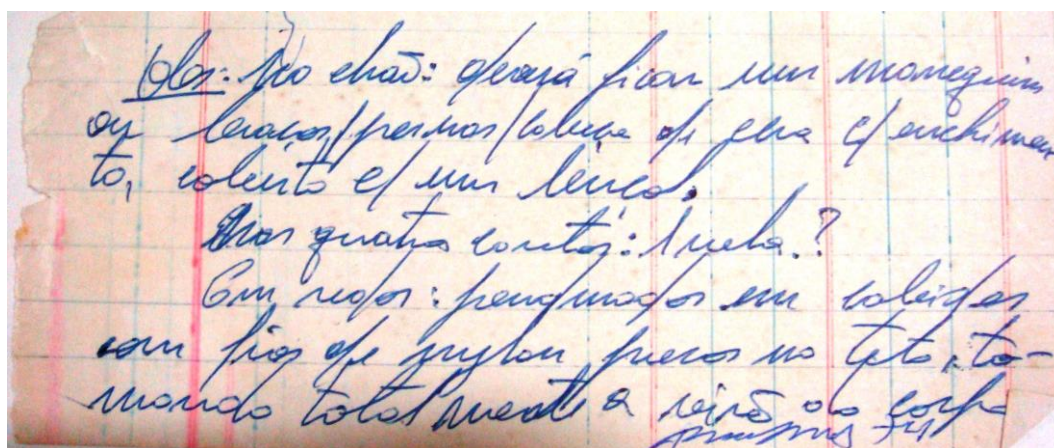 Obs: No chão: deverá ficar um manequim
ou braços/pernas/cabeça de cera c/ enchimen
to, coberto c/ um lençol.
Nos quatro cantos: 1 vela.?
Em redor: pendurados em cabides
com fios de nylon, presos no teto, to-
mando totalmente a visão do corpo